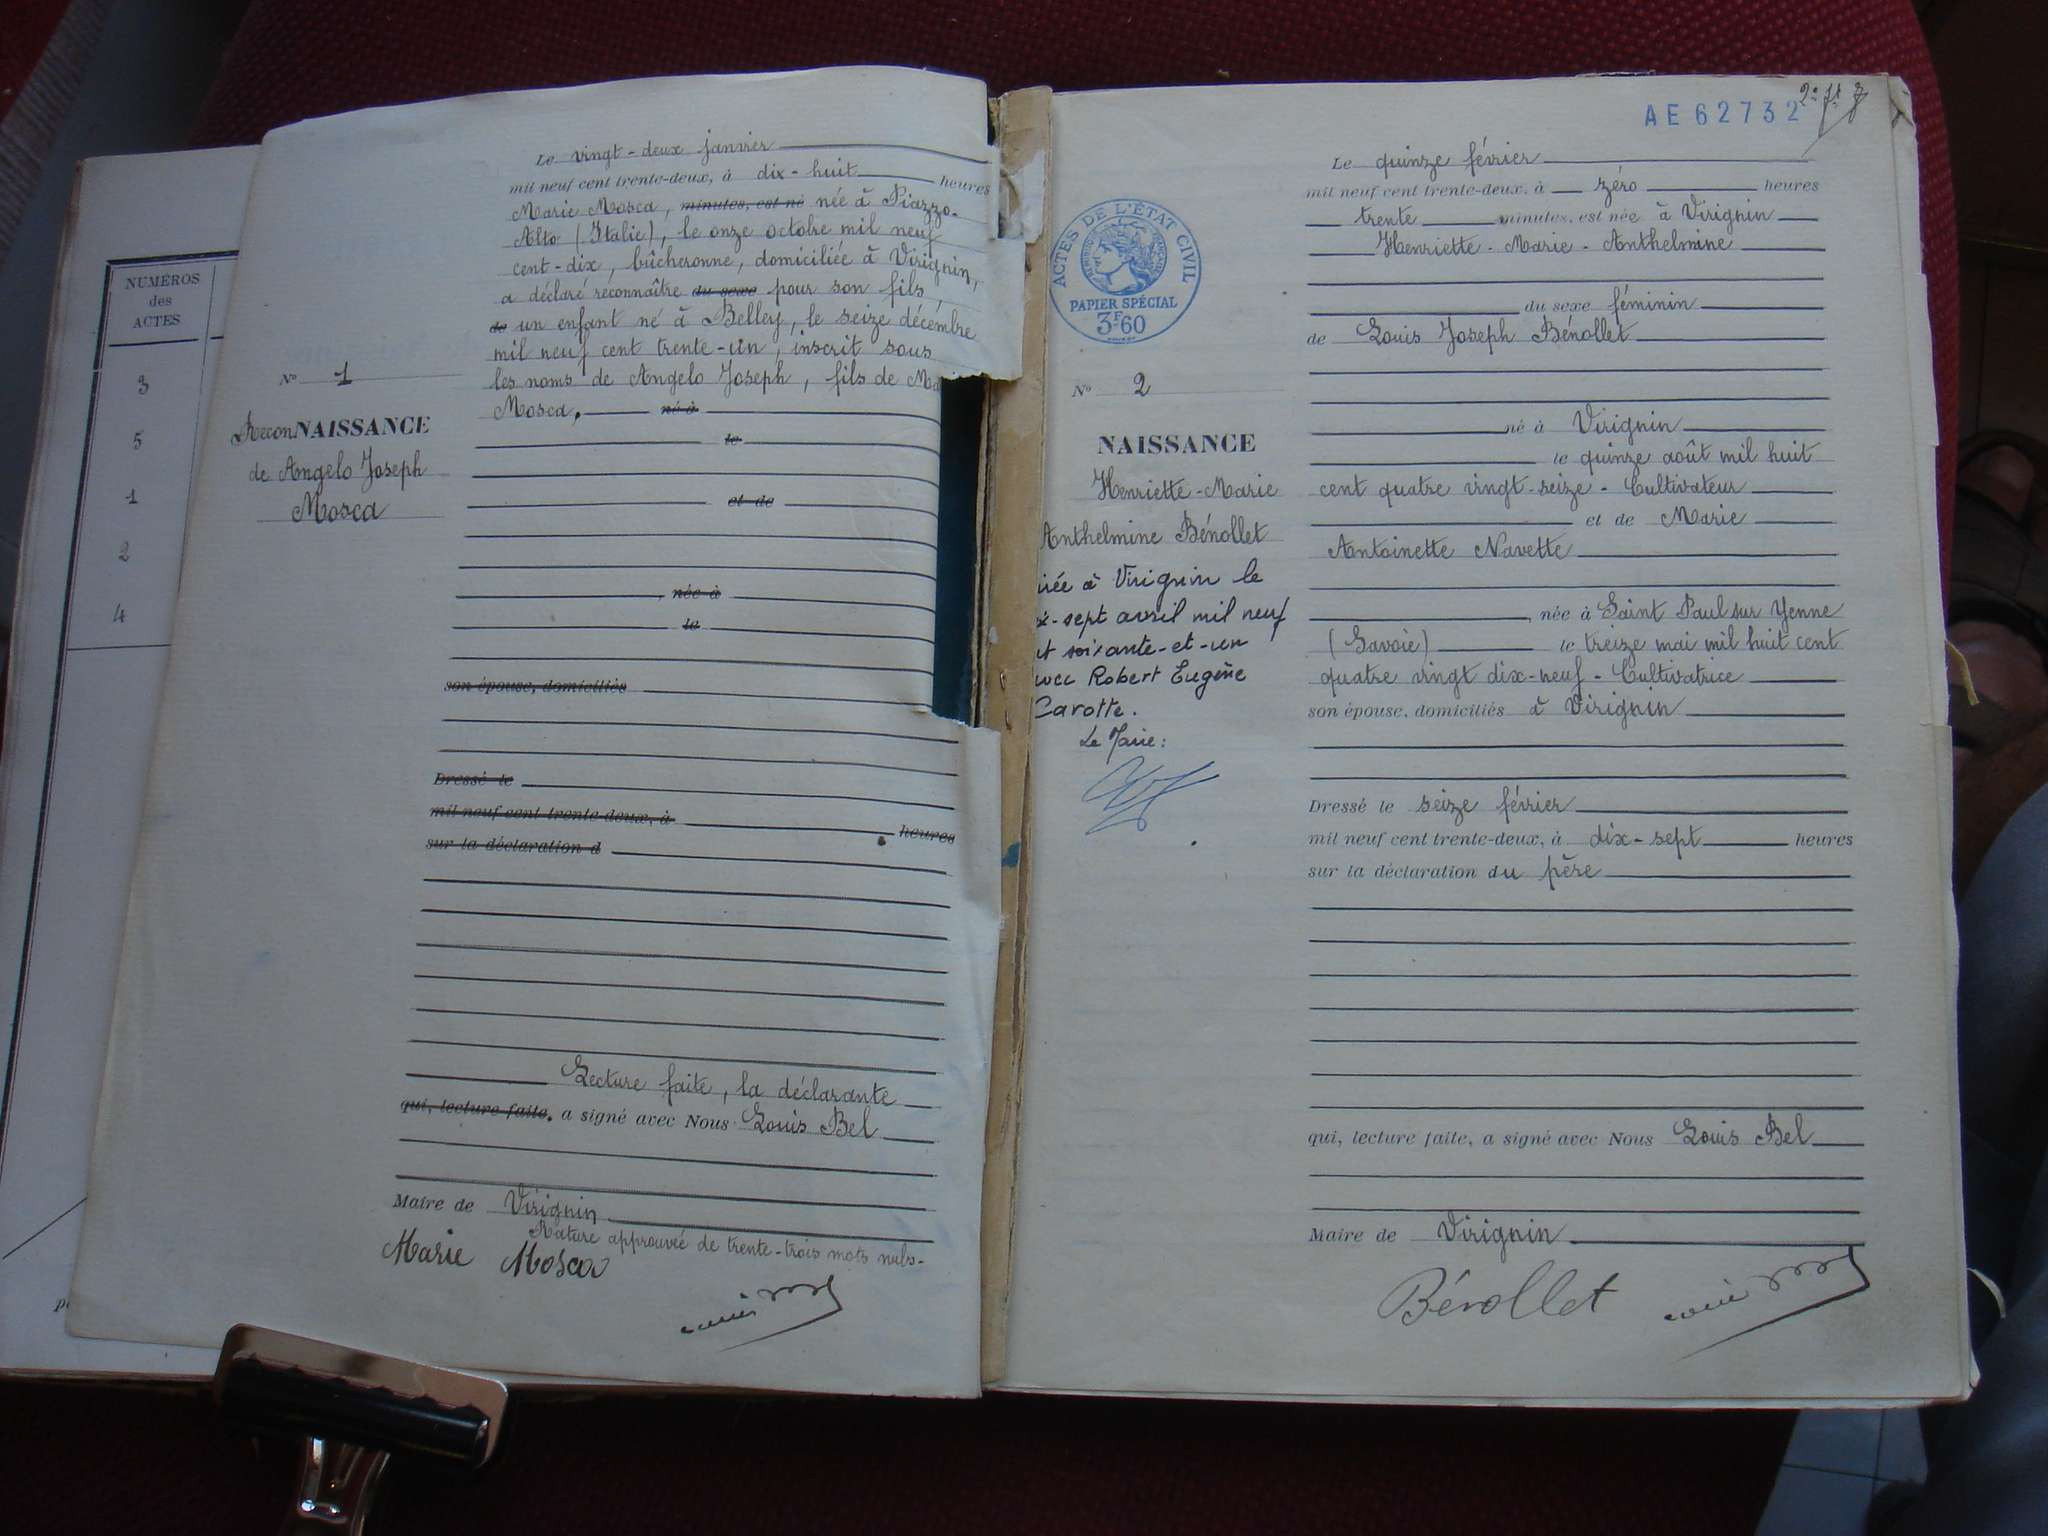 NUMÉROS
des
ACTES
3
5
1
2
4
Le vingt-deux janvier
mil neuf cent trente-deux, à dix-huit heures
Marie Mosca, minutes, est né née à Piazzo-
Alto (Italie), le onze octobre mil neuf
cent-dix, bûcheronne, domiciliée à Virignin,
a déclaré reconnaître du sexe pour son fils,
de un enfant né à Belley, le seize décembre
mil neuf cent trente-un, inscrit sous
les noms de Angelo Joseph, fils de Ma
Mosca, né à
le
et de
, née à
le
son épouse, domiciliés
Dressé le
mil neuf cent trente-deux, à heures
sur la déclaration d
Lecture faite, la déclarante
qui, lecture faite, a signé avec Nous Louis Bel
Maire de Virignin
Rature approuvée de trente-trois mots nuls-
Marie Mosca
N° 1
ReconNAISSANCE
de Angelo Joseph
Mosca
AE 62732
2e ft
ACTES DE L'ÉTAT CIVIL
PAPIER SPÉCIAL
3F60
N° 2
NAISSANCE
Henriette-Marie
Anthelmine Bénollet
iée à Virignin le
x-sept avril mil neuf
t soixante-et-un
avec Robert Eugène
Carotte.
Le Maire:
Le quinze février
mil neuf cent trente-deux, à zéro heures
trente minutes, est née à Virignin
Henriette-Marie-Anthelmine
du sexe féminin
de Louis Joseph Bénollet
né à Virignin
le quinze août mil huit
cent quatre vingt-seize - Cultivateur
et de Marie
Antoinette Navette
, née à Saint Paul sur Yenne
(Savoie) le treize mai mil huit cent
quatre vingt dix-neuf - Cultivatrice
son épouse, domiciliés à Virignin
Dressé le seize février
mil neuf cent trente-deux, à dix-sept heures
sur la déclaration du père
qui, lecture faite, a signé avec Nous Louis Bel
Maire de Virignin
Bénollet